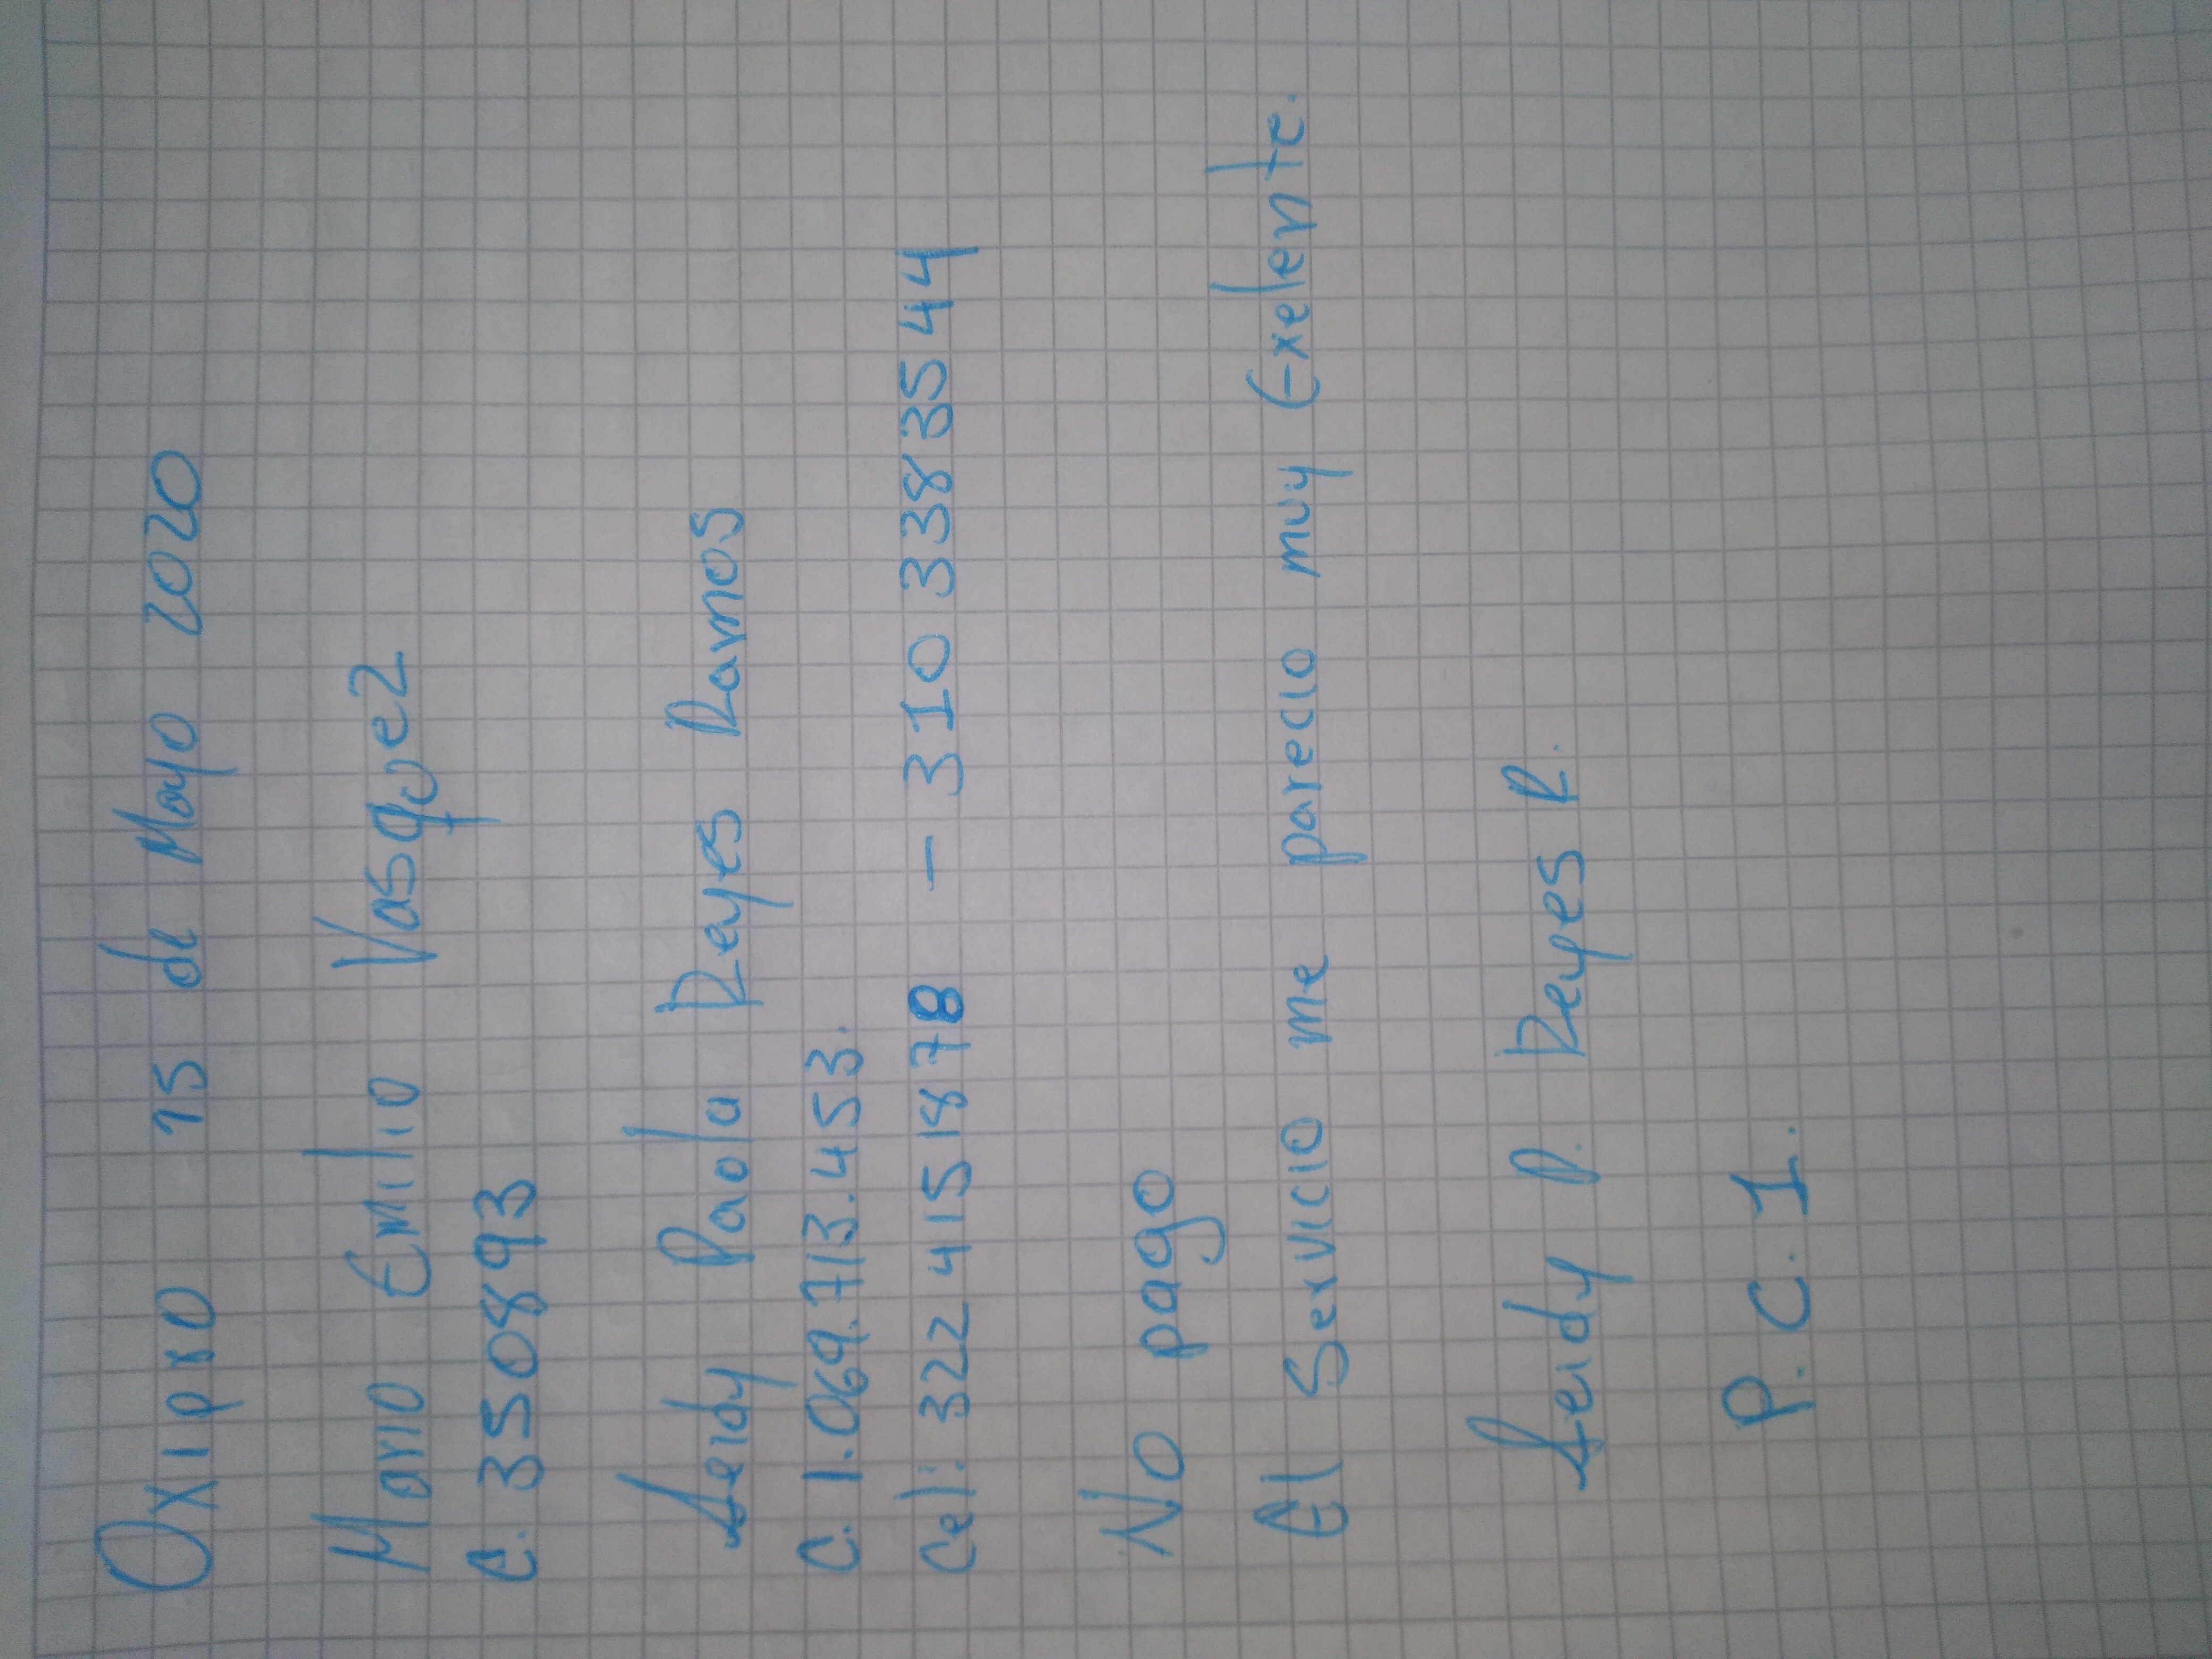 Oxipro 15 de Mayo 2020
Mario Emilio Vasquez
C. 3508893
Leidy Paola Reyes Ramos
C. 1.069.713.453.
Cel: 322 415 1878 - 310 3383544
No pago
El Servicio me parecio muy Exelente.
Leidy P. Reyes R.
P.C.1.